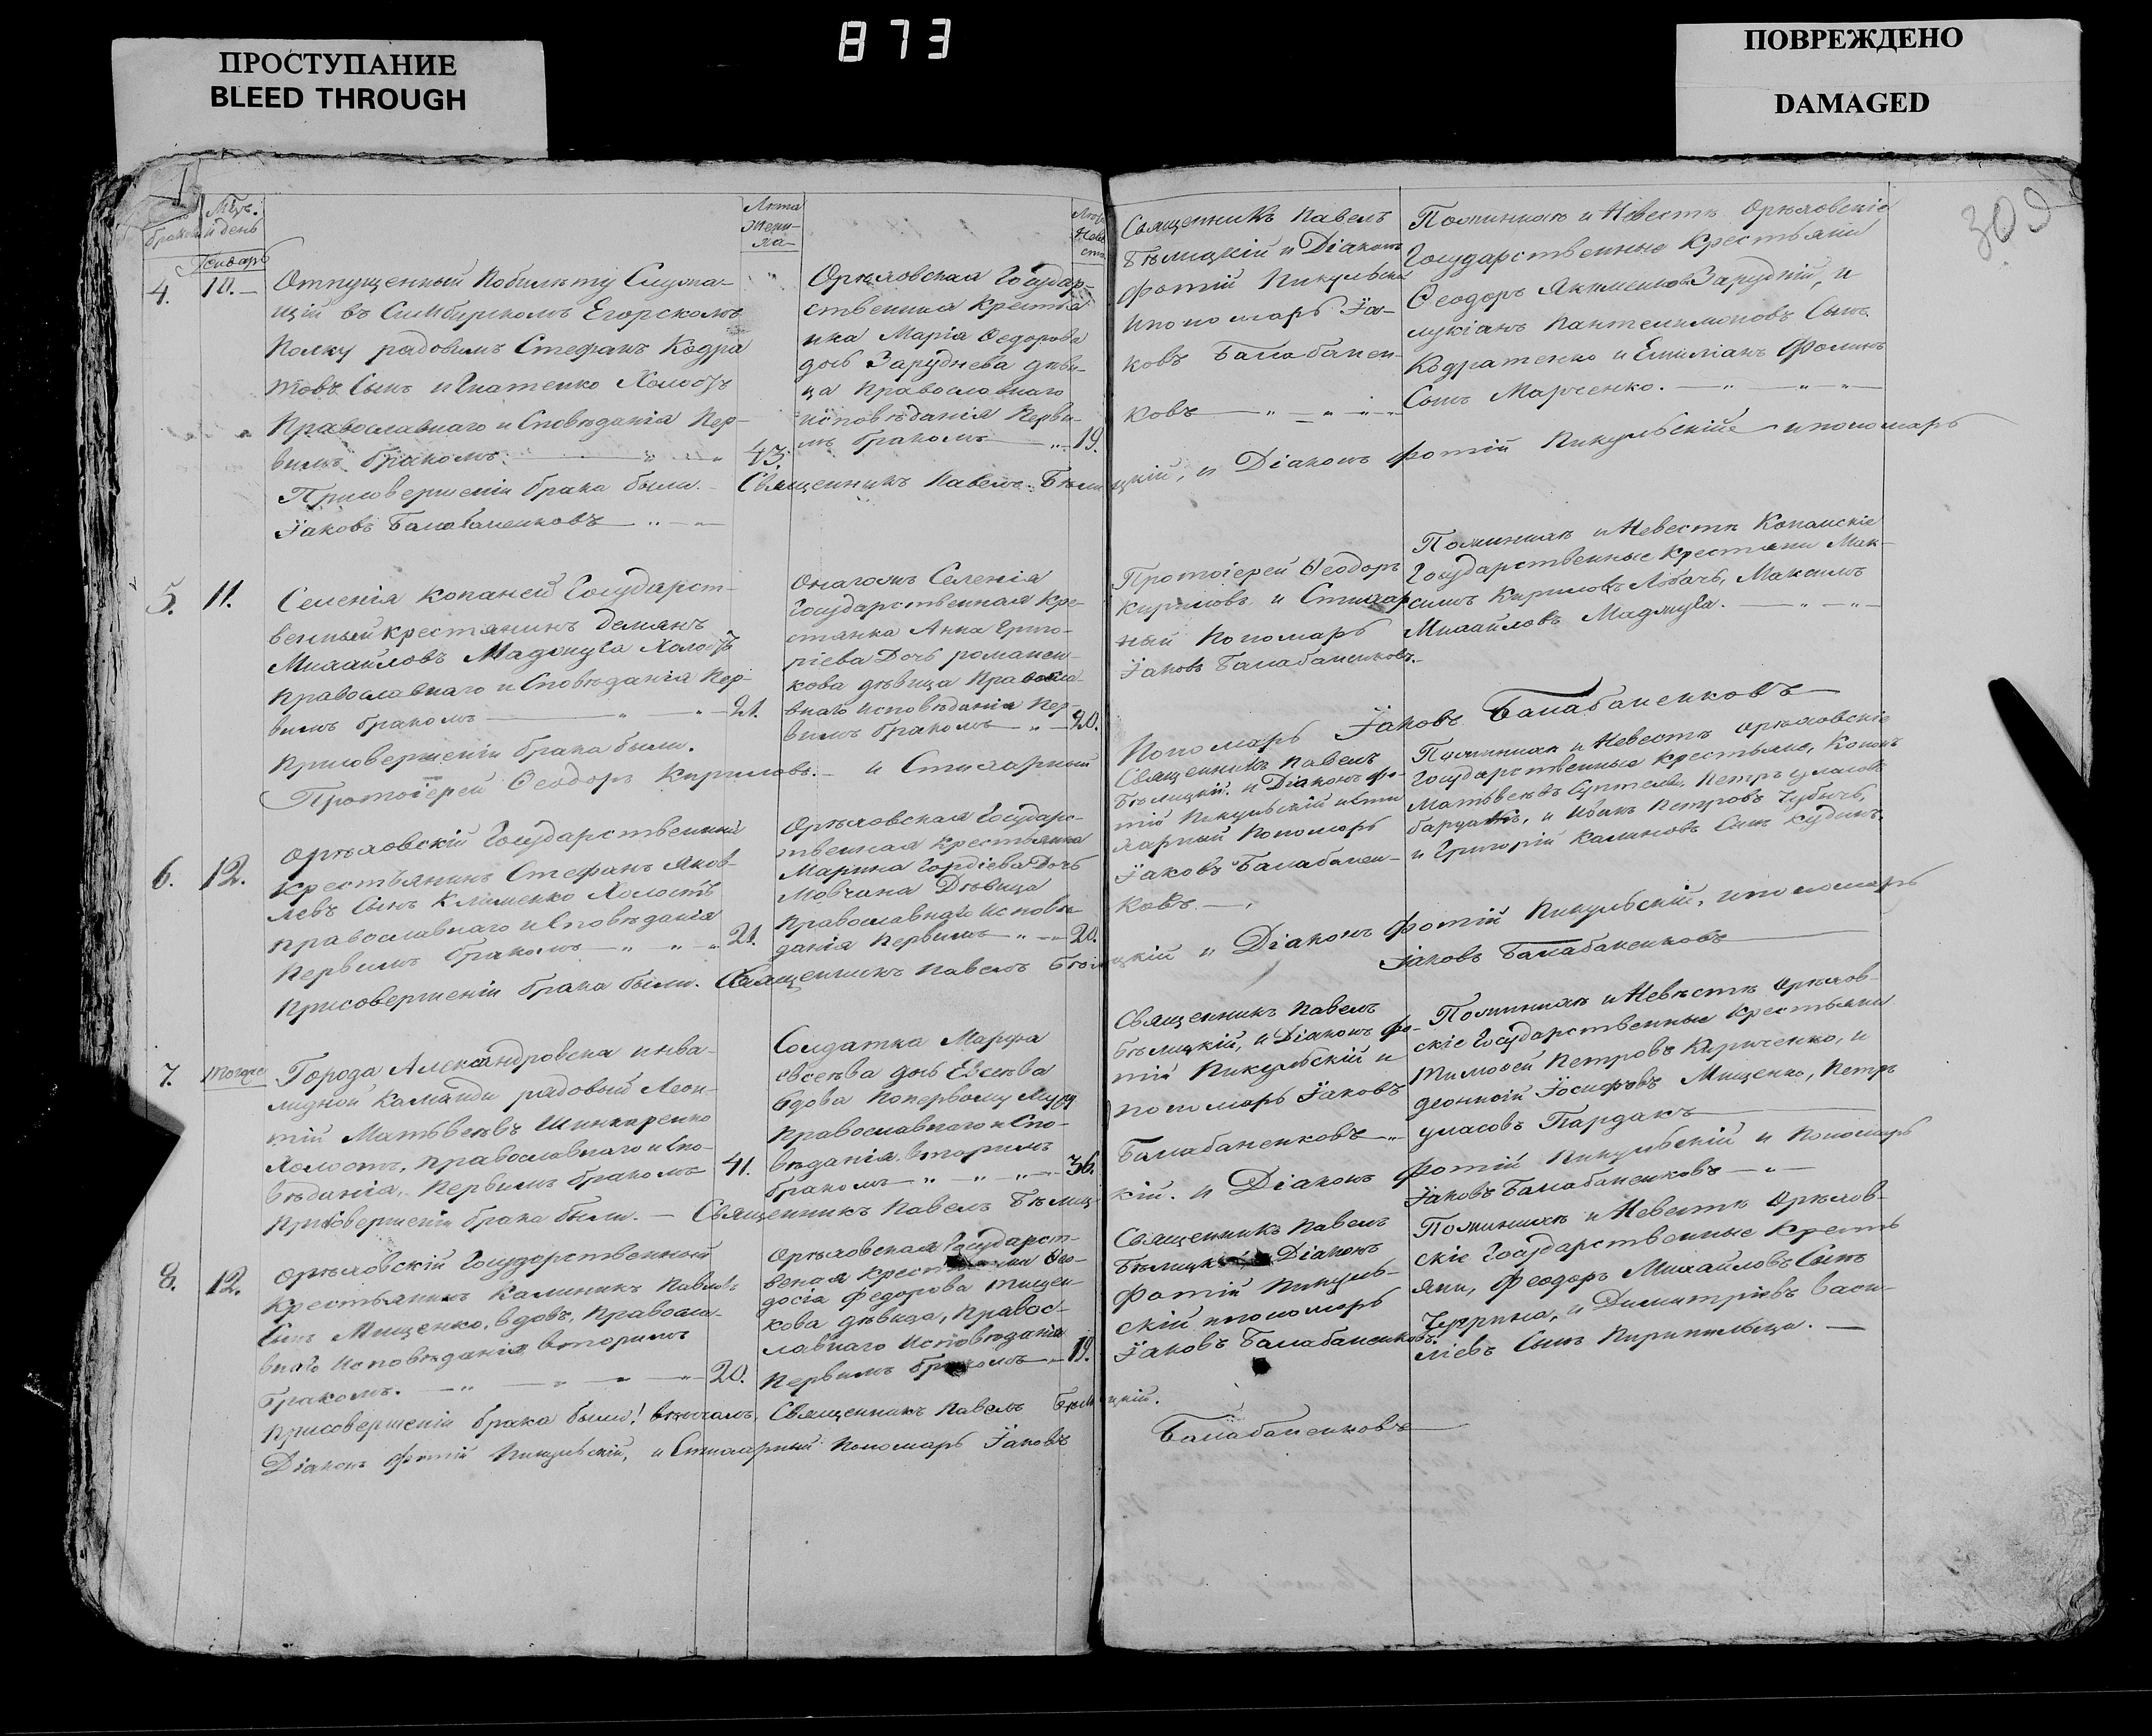 873
ПРОСТУПАНИЕ
BLEED THROUGH
ПОВРЕЖДЕНО
DAMAGED
309
Мцъ.
и день
Лѣта
Жени-
ха
Январь
4. 10.
Отпущенный по билѣту Служа-
щій въ Симбирскомъ Егорскомъ
Полку радовымъ Стефанъ Кодра
товъ Сынъ Холостъ
Православнаго исповѣданія Пер-
вымъ бракомъ 43.
Орѣховская Государ-
ственная Крестья
нка Марія Федорова
дочь Заруднева дѣви-
ца Православнаго
исповѣданія Первы-
мъ бракомъ 19.
Священникъ Павелъ
Бѣлицкій и Діаконъ
Фотій Пикульскій
и пономарь Іа-
ковъ Балабанен-
ковъ
Поженихѣ и Невестѣ Орѣховскіе
Государственные Крестьяни
Феодоръ Якименковъ Зарудній, и
Лукіанъ Пантелимоновъ Сынъ
Кодратенко и Емиліанъ Фоминъ
Сынъ Марченко.
При совершеніи брака были. Священникъ Павелъ Бѣли цкій, и Діаконъ Фотій Пикульскій и пономарь
Іаковъ Балабаненковъ
5. 11.
Селенія Копаней Государст-
венный крестянинъ Демянъ
Михайловъ Холостъ
Православнаго исповѣданія Пер-
вымъ бракомъ 21.
Онагожъ Селенія
Государственная Кре-
стянка Анна Григо-
ріева Дочь романен-
кова дѣвица Правосла
внаго исповѣданія Пер
вымъ бракомъ 20.
Протоіерей Феодоръ
Кириловъ и Стихар
ный Пономарь
Іаковъ Балабаненковъ.
Поженихѣ и Невестѣ Копанскіе
Государственные Крестяни Мак-
симъ Кириловъ Лобачь, Максимъ
Михайловъ
При совершеніи брака были.
Протоіерей Феодоръ Кириловъ. и Стихарный Пономарь Іаковъ Балабаненковъ
6. 12.
Орѣховскій Государственный
Крестьянинъ Стефанъ Яков-
левъ Сынъ Клименко Холостъ
Православнаго исповѣданія
Первымъ бракомъ 21.
Орѣховская Государс-
твенная Крестьянка
Марина Гордіева Дочь
Мовчана Дѣвица
Православнаго исповѣ
данія Первымъ 20.
Священникъ Павелъ
Бѣлицкій и Діаконъ Фо-
тій Пикульскій и Сти
харный Пономарь
Іаковъ Балабанен-
ковъ.
Поженихѣ и Невестѣ Орѣховскіе
Государственные Крестьяне, Кононъ
Матьвеевъ Петръ Уласовъ
и Иванъ Петровъ
и Григорій Калиновъ Сынъ
При совершеніи брака были. Священникъ Павелъ Бѣли цкій и Діаконъ Фотій Пикульскій, и пономарь
Іаковъ Балабаненковъ
7.
Города Александровска инва-
лидной Каманди радовый Леон-
тій Матьвеевъ Шинкаренко
Холостъ, православнаго испо-
вѣданія, Первымъ бракомъ 41.
Солдатка Марфа
Евсеева дочь Евсеева
вдова По первому Мужу
Православнаго испо-
вѣданія вторымъ
бракомъ 36.
Священникъ Павелъ
Бѣлицкій, и Діаконъ Фо-
тій Пикульскій и
пономарь Іаковъ
Балабаненковъ
Поженихѣ и Невѣстѣ Орѣхов-
скіе Государственные Крестьяни
Тимофей Петровъ Кириченко, и
Леонтій Іосифовъ Мищенко, Петръ
Уласовъ Пардакъ
При совершеніи брака были. Священникъ Павелъ Бѣлиц кій. и Діаконъ Фотій Пикульскій и Пономарь
Іаковъ Балабаненковъ
8. 12.
Орѣховскій Государственный
Крестьянинъ Калиникъ Павловъ
Сынъ Мищенко, вдовъ, Правосла-
внаго исповѣданія, вторымъ
бракомъ. 20.
Орѣховская Государст-
веная Крестьянка Фео-
досія Федорова Тищен-
кова дѣвица, Правос-
лавнаго исповѣданія
Первымъ бракомъ 19.
Священникъ Павелъ
Бѣлицкій Діаконъ
Фотій Пикуль-
скій и пономарь
Іаковъ Балабаненковъ.
Поженихѣ и Невестѣ Орѣхов-
скіе Государственные Кресть
яни, Феодоръ Михайловъ Сынъ
и Димитріевъ Васи-
ліевъ Сынъ
При совершеніи брака были: вѣнчалъ, Священникъ Павелъ Бѣли цкій.
Діаконъ Фотій Пикульскій, и Стихарный Пономарь Іаковъ Балабаненковъ